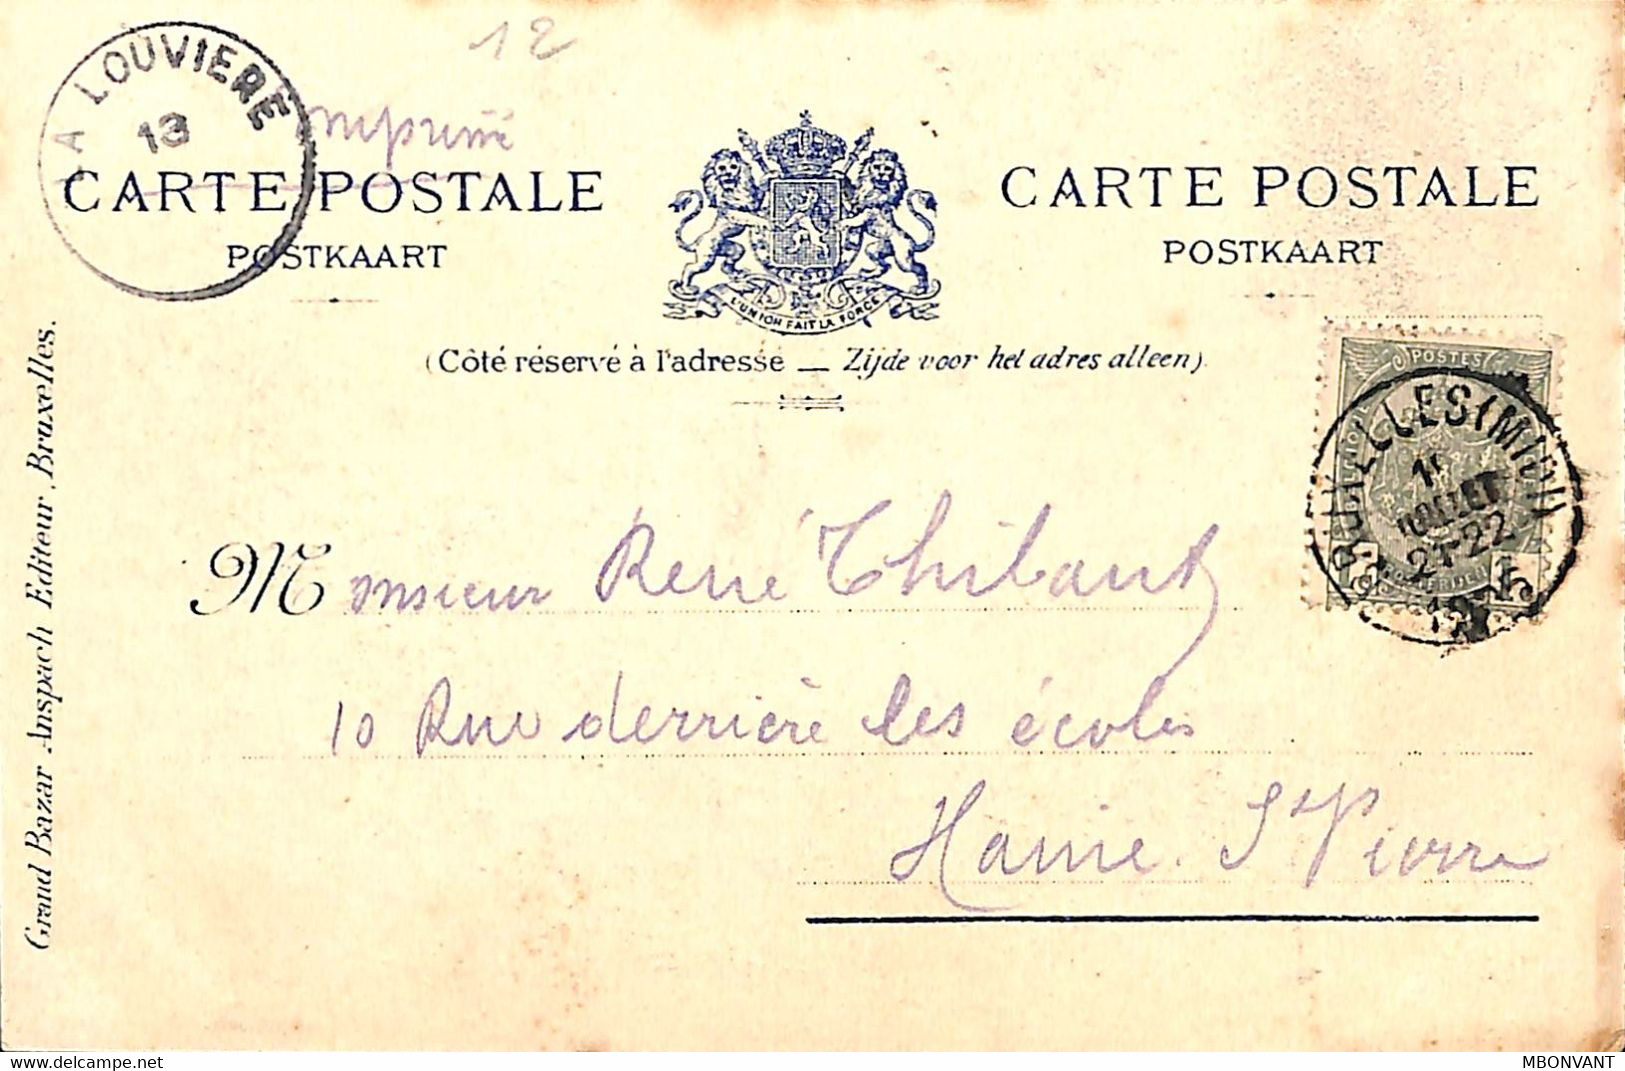 12
LA LOUVIERE
13
Imprimé
CARTE POSTALE
POSTKAART
L'UNION FAIT LA FORCE
CARTE POSTALE
POSTKAART
(Côté réservé à l'adresse — Zijde voor het adres alleen).
POSTES
BRUXELLES (MIDI)
JUILLET
21-22
Monsieur René Thibaut
10 Rue derrière les écoles
Haine St Pierre
Grand Bazar Anspach Editeur, Bruxelles.
MBONVANT